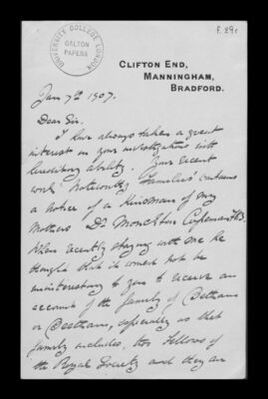 F. 89r
UNIVERSITY COLLEGE LONDON
GALTON
PAPERS
CLIFTON END,
MANNINGHAM,
BRADFORD.
Jan 7th 1907.
Dear Sir.
I have always taken a great
interest in your investigations into
hereditary ability. Your recent
work 'Noteworthy Families' contains
a notice of a kinsman of my
Mothers Dr Monckton Copeman F.R.S.
When recently staying with me he
thought that it would not be
uninteresting to you to receive an
account of the family of Beetham
or Betham, especially as that
family includes two Fellows of
the Royal Society and they are